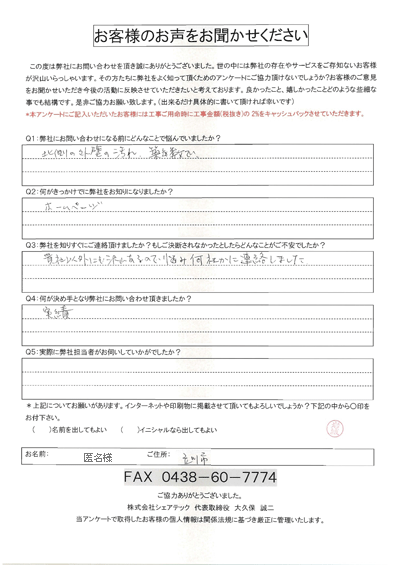 お客様のお声をお聞かせください
この度は弊社にお問い合わせを頂き誠にありがとうございました。世の中には弊社の存在やサービスをご存知ないお客様
が沢山いらっしゃいます。その方たちに弊社をよく知って頂くためのアンケートにご協力頂けないでしょうか？お客様のご意見
をお聞かせいただき今後の活動に反映させていただきたいと考えております。良かったこと、嬉しかったことどのような些細な
事でも結構です。是非ご協力お願い致します。（出来るだけ具体的に書いて頂ければ幸いです）
*本アンケートにご記入いただいたお客様には工事ご用命時に工事金額(税抜き)の 2%をキャッシュバックさせていただきます。
Q1：弊社にお問い合わせになる前にどんなことで悩んでいましたか？
北側の外壁の汚れ
Q2：何がきっかけでに弊社をお知りになりましたか？
ホームページ
Q3：弊社を知りすぐにご連絡頂けましたか？もしご決断されなかったとしたらどんなことがご不安でしたか？
貴社以外にも沢山あるので悩み何社かに連絡しました
Q4：何が決め手となり弊社にお問い合わせ頂きましたか？
実績
Q5：実際に弊社担当者がお伺いしていかがでしたか？
＊上記についてお願いがあります。インターネットや印刷物に掲載させて頂いてもよろしいでしょうか？下記の中から〇印を
お付下さい。
（　　）名前を出してもよい　（　　）イニシャルなら出してもよい
お名前： 匿名様 ご住所： 市
FAX 0438-60-7774
ご協力ありがとうございました。
株式会社シェアテック 代表取締役 大久保 誠二
当アンケートで取得したお客様の個人情報は関係法規に基づき厳正に管理いたします。